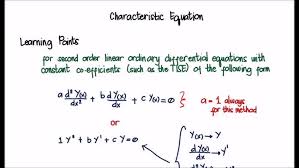 Characteristic Equation
Learning Points
for second order linear ordinary differential equations with
constant co-efficients (such as the TISE) of the following form
a d²Y(x)/dx² + b dY(x)/dx + c Y(x) = 0 } a = 1 always
for this method
or
1 Y" + b Y' + c Y = 0
Y(x) → Y
dY(x)/dx → Y'